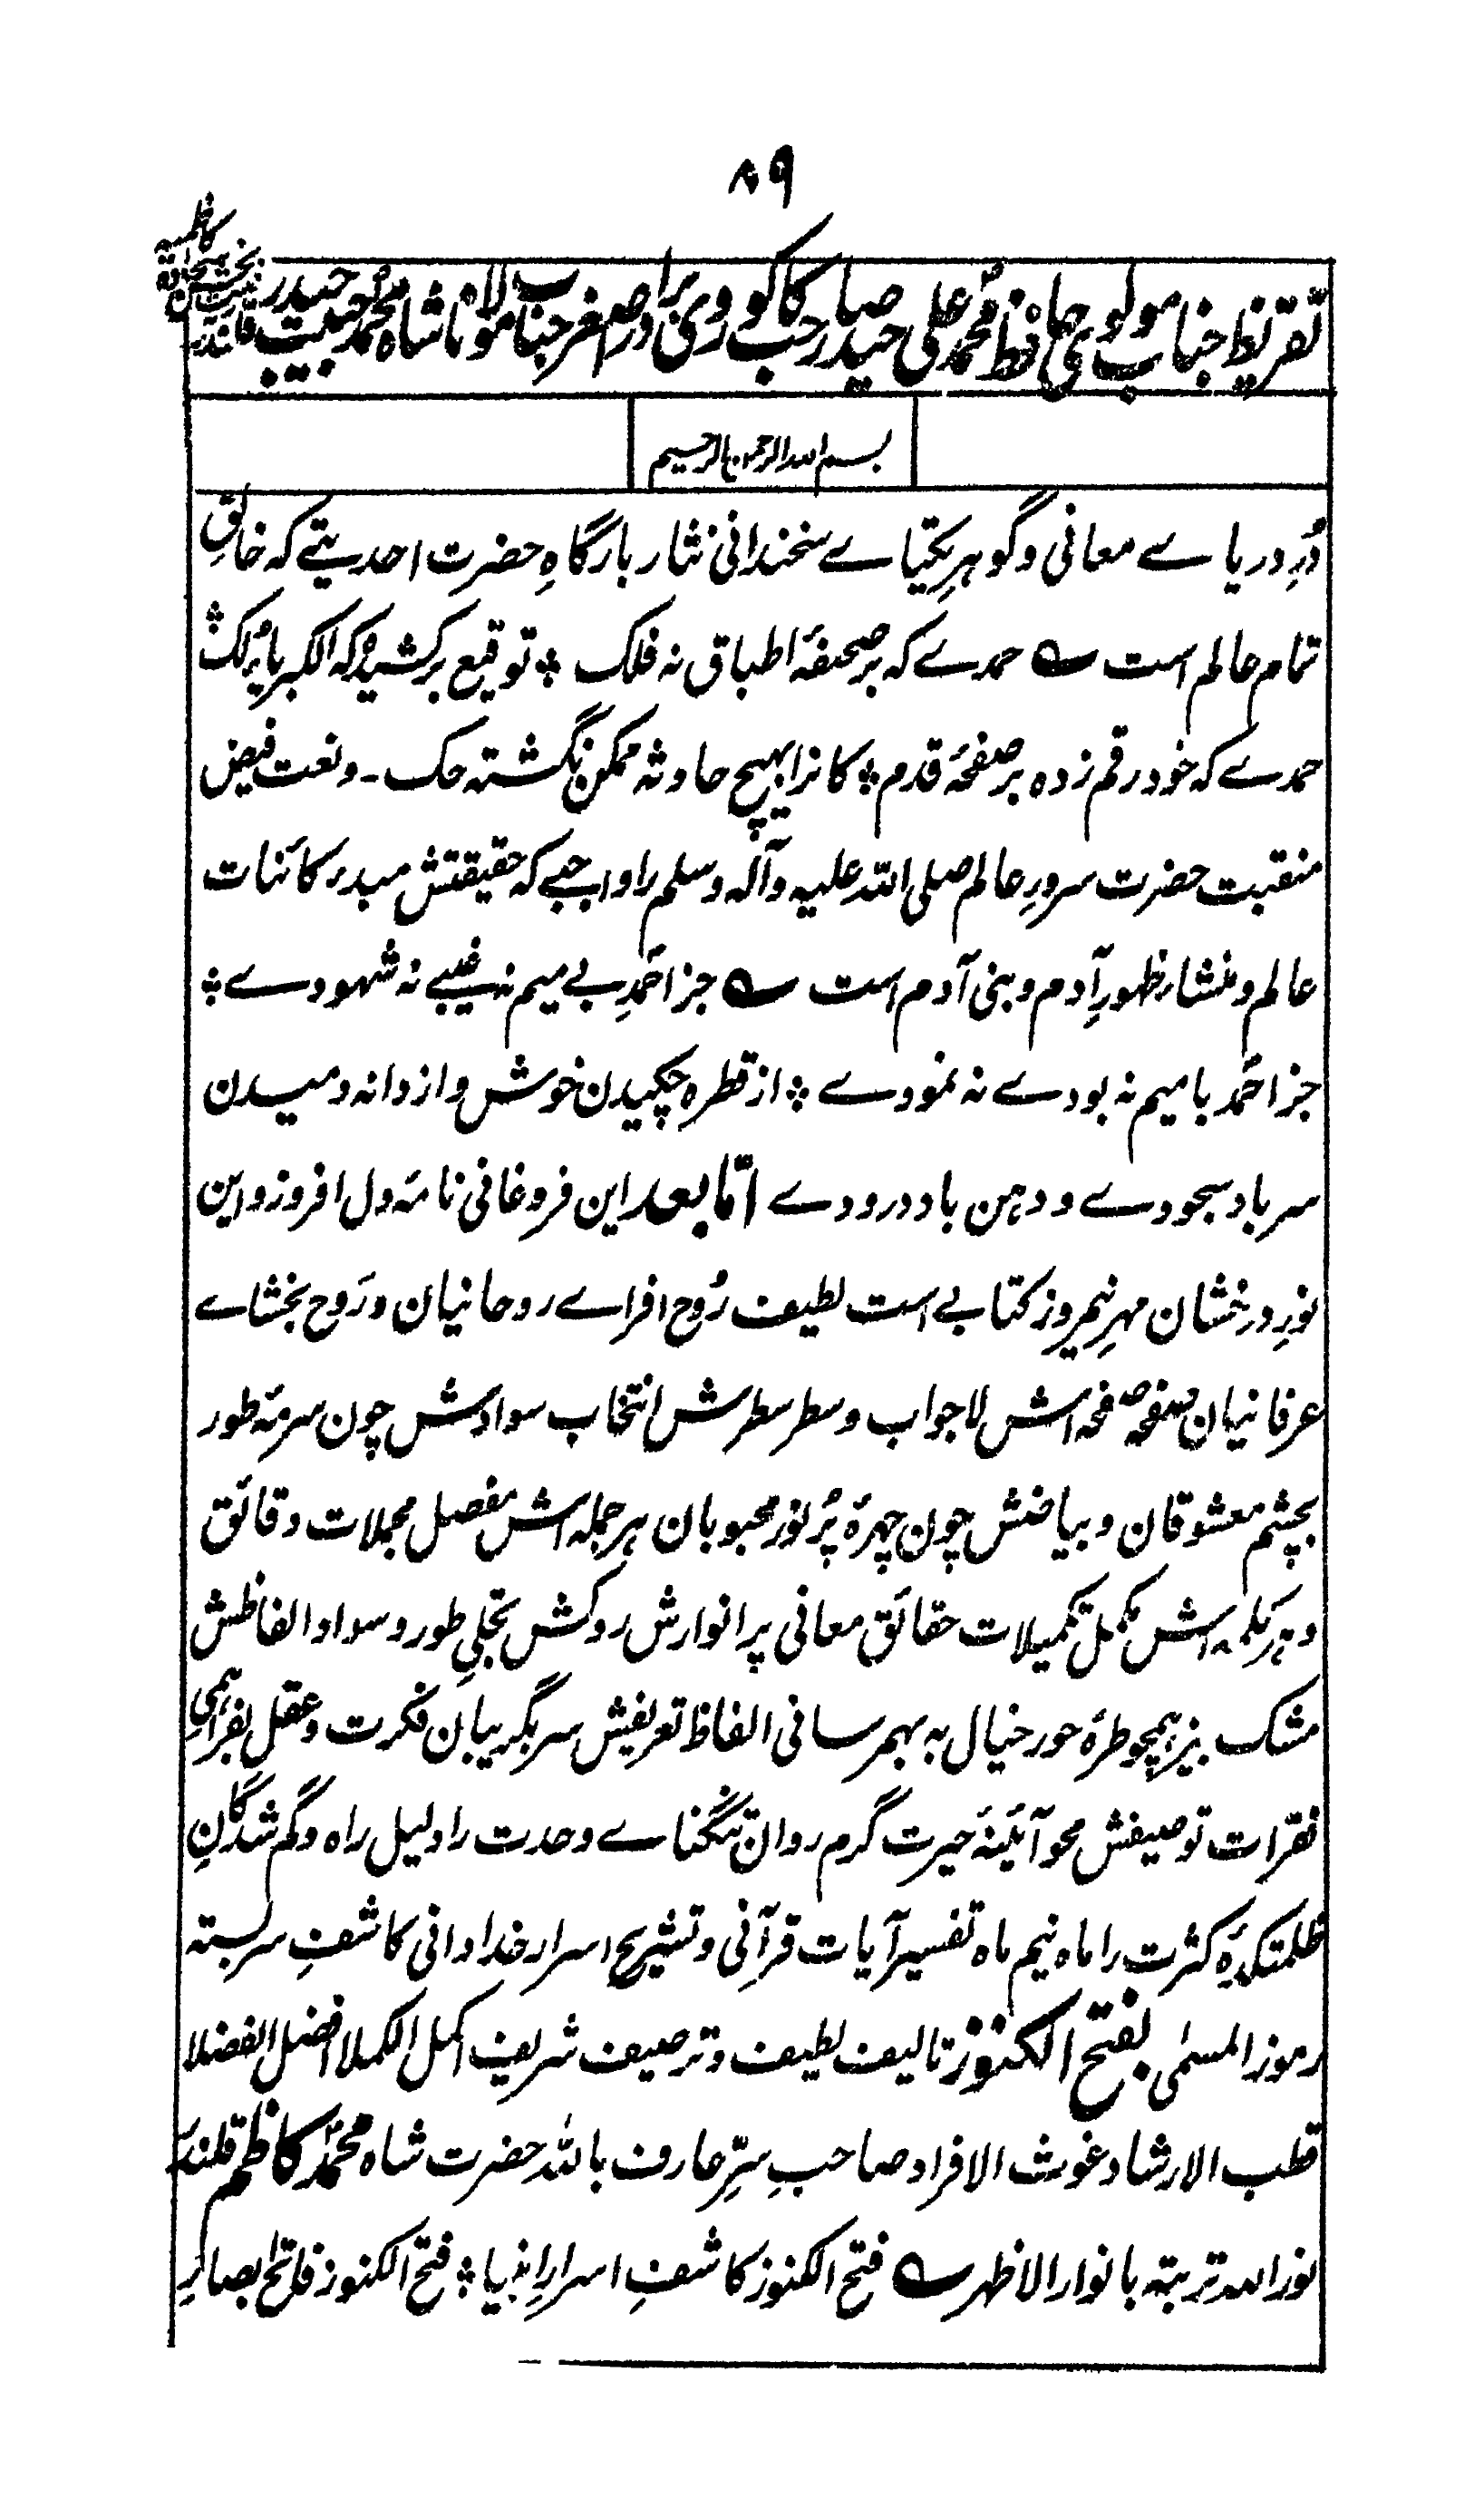 ۸۹
تقریظ جناب مولوی حافظ محمد علی حیدر صاحب کاکوروی برادر اصغر جناب مولانا شاه محمد حبیب حیدر قلندر
کاظمیه
بسم الله الرحمن الرحیم
دُرِ دریاے معانی و گوهرِ یکتاے سخندانی نثار بارگاهِ حضرت احدیتے که خالقِ
تمام عالم است ؎ حمدے که بر صحیفۀ اطباق نه فلک ؞ توقیع برکشیده که الکبریاء لک ؞
حمدے که خود رقم زده بر صفحۀ قدم ؞ کانرا بهیچ حادثه ممکن نگشته حک ۔ و نعت فیض
منقبت حضرت سرورِ عالم صلی الله علیه وآله وسلم را واجبے که حقیقتش مبدر کائنات
عالم و منشار ظهورِ آدم و بنی آدم است ؎ جز احمدِ بے میم نه غیبے نه شهودے ؞
جز احمد با میم نه بودے نه نمودے ؞ از قطره چکیدن خوش و از دانه دمیدن
سر باد سجودے و دهن باد درودے امّا بعد این فروغانی نامۀ دل افروز و این
نورِ درخشان مهرِ نیمروز کتابے است لطیف رُوح افزاے روحانیان و رَوح بخشاے
عرفانیان صفحه صفحه اش لاجواب و سطر سطرش انتخاب سوادش چون سرمۀ طور
بچشم معشوقان و بیاضش چون چهرۀ پُر نور محبوبان هر جمله اش مفصل مجملات دقائق
و هر کلمه اش مکمل تکمیلات حقائق معانی پر انوارش روکش تجلیِ طور و سواد الفاظش
مشک بیز همچو طرۀ حور خیال به بهمرسانی الفاظ تعریفش سر بگریبان فکرت و عقل بفراهمیِ
فقرات توصیفش محو آئینۀ حیرت گرم روان تنگناے وحدت را دلیل راه و گم شدگانِ
ظلمتکدۀ کثرت را ماه نیم ماه تفسیر آیات قرآنی و تشریح اسرار خدادانی کاشفِ سربسته
رموز المسمٰی بفتح الکنوز تالیف لطیف و ترصیف شریف اکمل الکملا افضل الفضلا
قطب الارشاد غوث الافراد صاحبِ سِرّ عارف بالله حضرت شاه محمد کاظم قلندر
نور الله تربته بانوار الاظهر ؎ فتح الکنوز کاشفِ اسرارِ انبیا ؞ فتح الکنوز فاتح ابصارِ